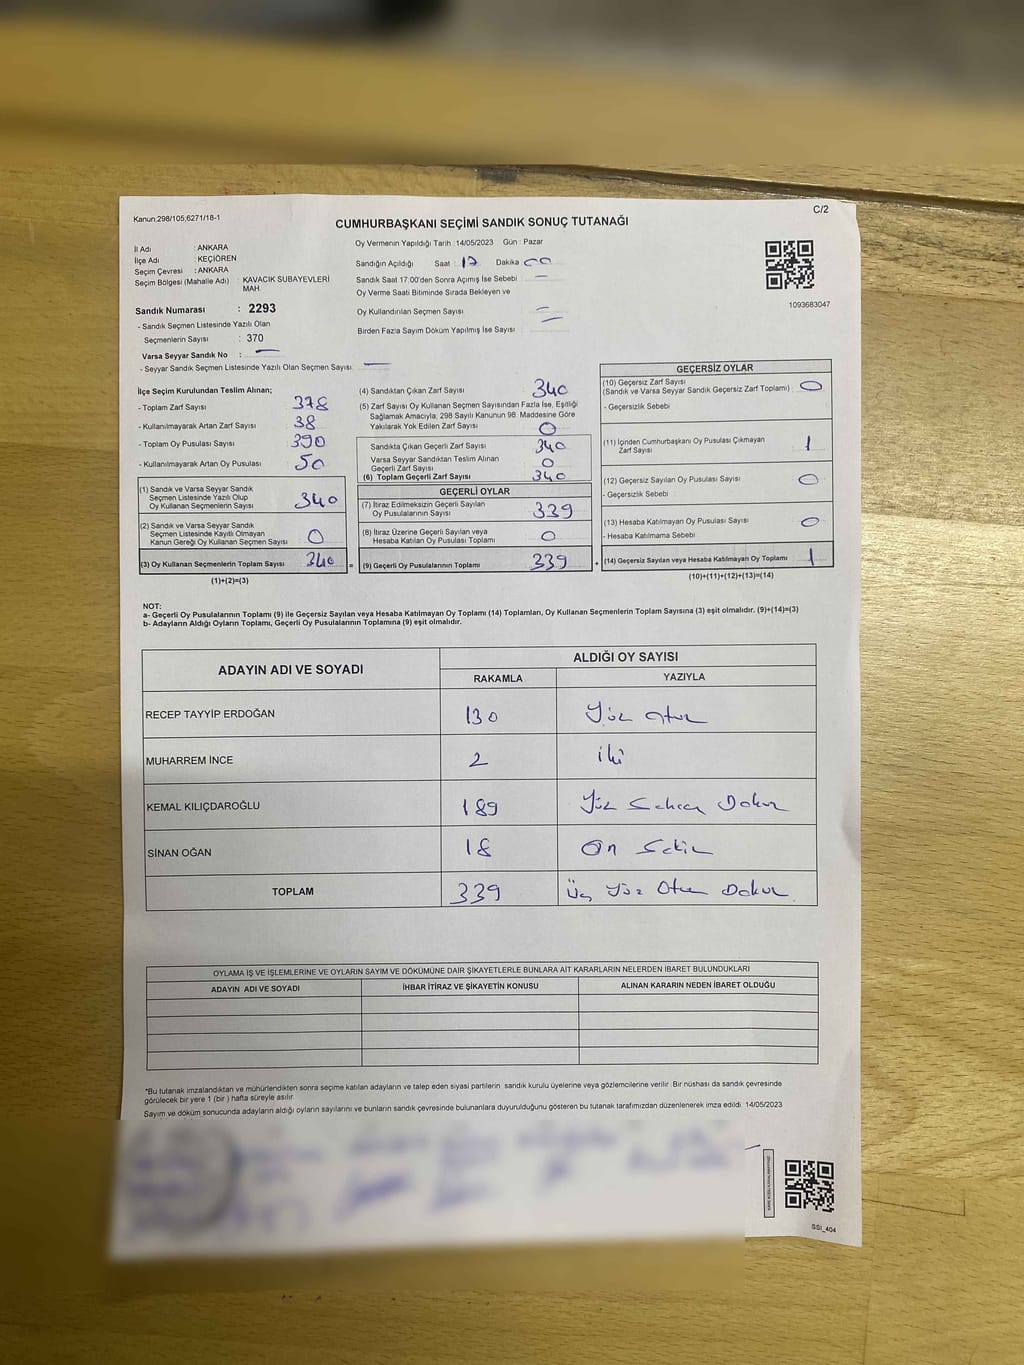 Kanun;298/105,6271/18-1
C/2
CUMHURBAŞKANI SEÇİMİ SANDIK SONUÇ TUTANAĞI
İl Adı : ANKARA
İlçe Adı : KEÇİÖREN
Seçim Çevresi : ANKARA
Seçim Bölgesi (Mahalle Adı) : KAVACIK SUBAYEVLERİ
MAH.
Sandık Numarası : 2293
- Sandık Seçmen Listesinde Yazılı Olan
Seçmenlerin Sayısı : 370
Varsa Seyyar Sandık No : —
- Seyyar Sandık Seçmen Listesinde Yazılı Olan Seçmen Sayısı: —
Oy Vermenin Yapıldığı Tarih : 14/05/2023 Gün : Pazar
Sandığın Açıldığı Saat : 17 Dakika : 00
Sandık Saat 17:00'den Sonra Açımış İse Sebebi : —
Oy Verme Saati Bitiminde Sırada Bekleyen ve
Oy Kullandırılan Seçmen Sayısı : —
Birden Fazla Sayım Döküm Yapılmış İse Sayısı : —
1093683047
İlçe Seçim Kurulundan Teslim Alınan;
- Toplam Zarf Sayısı 378
- Kullanılmayarak Artan Zarf Sayısı 38
- Toplam Oy Pusulası Sayısı 390
- Kullanılmayarak Artan Oy Pusulası 50
(1) Sandık ve Varsa Seyyar Sandık
Seçmen Listesinde Yazılı Olup
Oy Kullanan Seçmenlerin Sayısı 340
(2) Sandık ve Varsa Seyyar Sandık
Seçmen Listesinde Kayıtlı Olmayan
Kanun Gereği Oy Kullanan Seçmen Sayısı 0
(3) Oy Kullanan Seçmenlerin Toplam Sayısı 340 =
(1)+(2)=(3)
(4) Sandıktan Çıkan Zarf Sayısı 340
(5) Zarf Sayısı Oy Kullanan Seçmen Sayısından Fazla İse, Eşitliği
Sağlamak Amacıyla; 298 Sayılı Kanunun 98. Maddesine Göre
Yakılarak Yok Edilen Zarf Sayısı 0
Sandıkta Çıkan Geçerli Zarf Sayısı 340
Varsa Seyyar Sandıktan Teslim Alınan
Geçerli Zarf Sayısı 0
(6) Toplam Geçerli Zarf Sayısı 340
GEÇERLİ OYLAR
(7) İtiraz Edilmeksizin Geçerli Sayılan
Oy Pusulalarının Sayısı 339
(8) İtiraz Üzerine Geçerli Sayılan veya
Hesaba Katılan Oy Pusulası Toplamı 0
(9) Geçerli Oy Pusulalarının Toplamı 339 +
GEÇERSİZ OYLAR
(10) Geçersiz Zarf Sayısı
(Sandık ve Varsa Seyyar Sandık Geçersiz Zarf Toplamı) : 0
- Geçersizlik Sebebi
(11) İçinden Cumhurbaşkanı Oy Pusulası Çıkmayan
Zarf Sayısı 1
(12) Geçersiz Sayılan Oy Pusulası Sayısı 0
- Geçersizlik Sebebi
(13) Hesaba Katılmayan Oy Pusulası Sayısı 0
- Hesaba Katılmama Sebebi
(14) Geçersiz Sayılan veya Hesaba Katılmayan Oy Toplamı 1
(10)+(11)+(12)+(13)=(14)
NOT:
a- Geçerli Oy Pusulalarının Toplamı (9) ile Geçersiz Sayılan veya Hesaba Katılmayan Oy Toplamı (14) Toplamları, Oy Kullanan Seçmenlerin Toplam Sayısına (3) eşit olmalıdır. (9)+(14)=(3)
b- Adayların Aldığı Oyların Toplamı, Geçerli Oy Pusulalarının Toplamına (9) eşit olmalıdır.
ADAYIN ADI VE SOYADI
ALDIĞI OY SAYISI
RAKAMLA YAZIYLA
RECEP TAYYİP ERDOĞAN 130 Yüz otuz
MUHARREM İNCE 2 iki
KEMAL KILIÇDAROĞLU 189 Yüz Seksen Dokuz
SİNAN OĞAN 18 On Sekiz
TOPLAM 339 Üç Yüz Otuz Dokuz
OYLAMA İŞ VE İŞLEMLERİNE VE OYLARIN SAYIM VE DÖKÜMÜNE DAİR ŞİKAYETLERLE BUNLARA AİT KARARLARIN NELERDEN İBARET BULUNDUKLARI
ADAYIN ADI VE SOYADI İHBAR İTİRAZ VE ŞİKAYETİN KONUSU ALINAN KARARIN NEDEN İBARET OLDUĞU
*Bu tutanak imzalandıktan ve mühürlendikten sonra seçime katılan adayların ve talep eden siyasi partilerin sandık kurulu üyelerine veya gözlemcilerine verilir. Bir nüshası da sandık çevresinde
görülecek bir yere 1 (bir) hafta süreyle asılır.
Sayım ve döküm sonucunda adayların aldığı oyların sayılarını ve bunların sandık çevresinde bulunanlara duyurulduğunu gösteren bu tutanak tarafımızdan düzenlenerek imza edildi. 14/05/2023
SSI_404